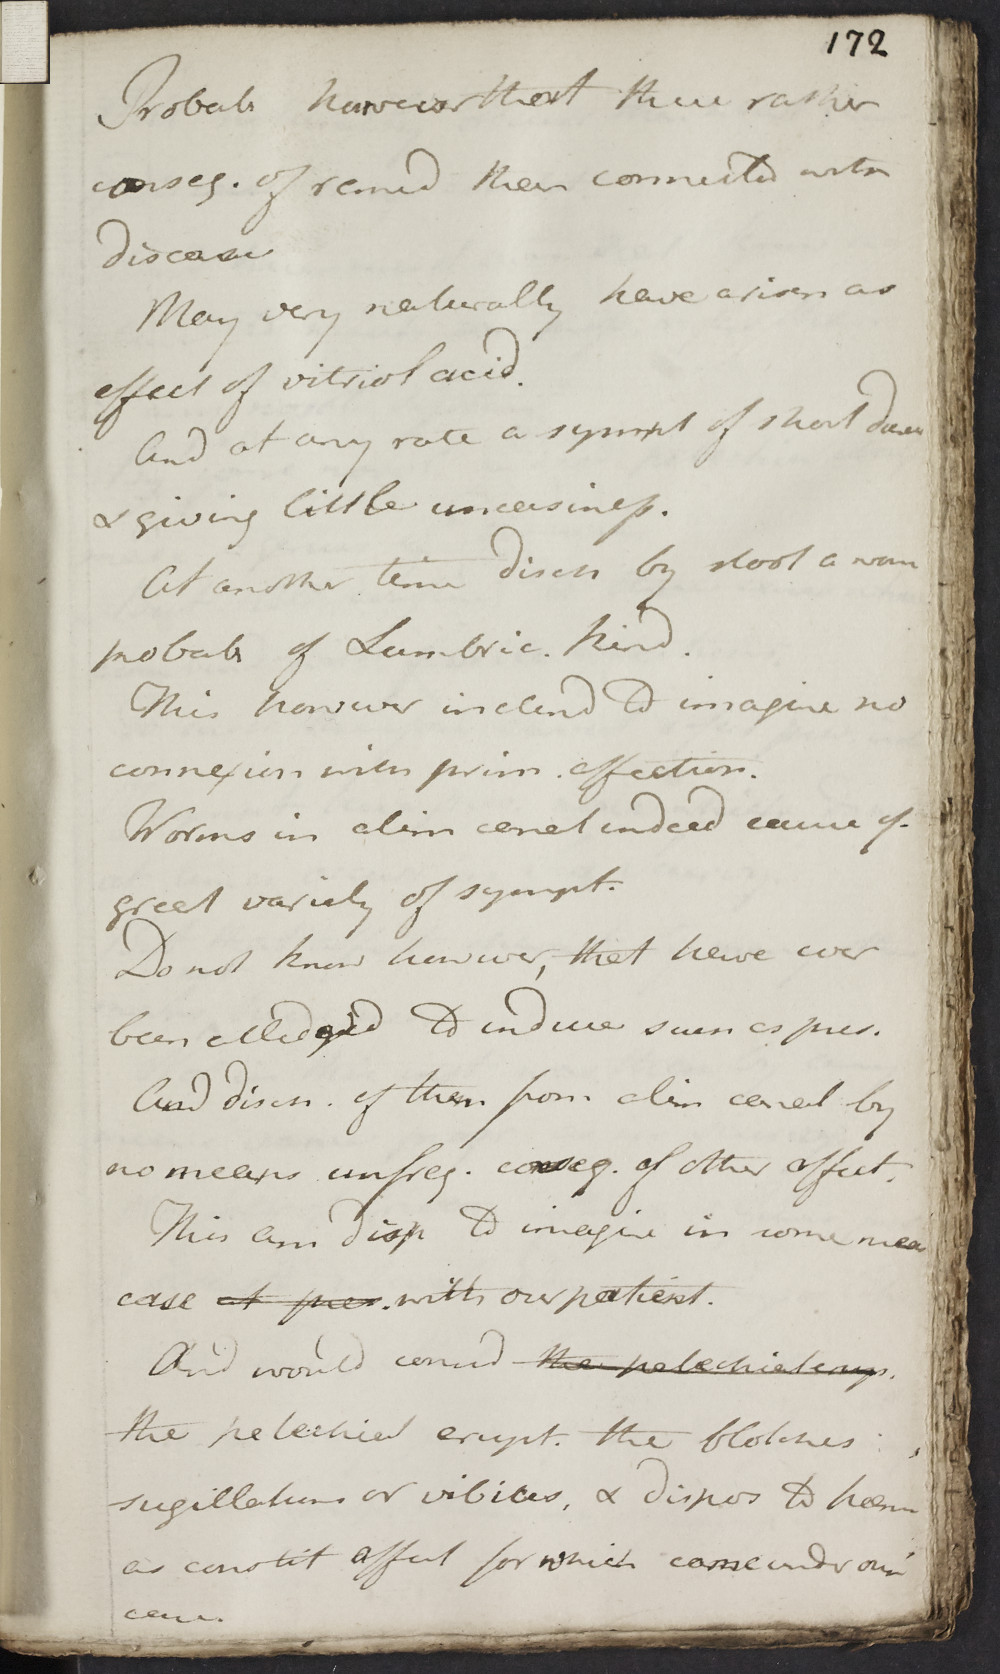 172
Probab however that these rather
conseq. of remed then connected with
disease
May very naturally have arisen as
effect of vitriol acid.
And at any rate a sympt of short durn
& giving little uneasiness.
At another time disch by stool a worm
probab of Lumbric. kind.
This however inclind to imagine no
connexion with prim. affection.
Worms in alim canal indeed cause of
great variety of sympt.
Do not know however, that have ever
been alledged to induce such as pres.
And disch. of them from alim canal by
no means unfreq. conseq. of other affect.
This am disp to imagine in some meas
case at pres. with our patient.
And would consid the petechial erup.
the petechial erupt. the blotches
sugillations or vibices, & dispos to haem
as constit affect for which came under our
care.